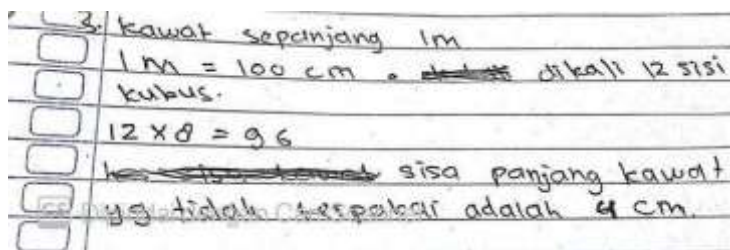 3. Kawat sepanjang 1m
1 m = 100 cm. dikali 12 sisi
kubus.
12 x 8 = 96
sisa panjang kawat
yg tidak terpakai adalah 4 cm.